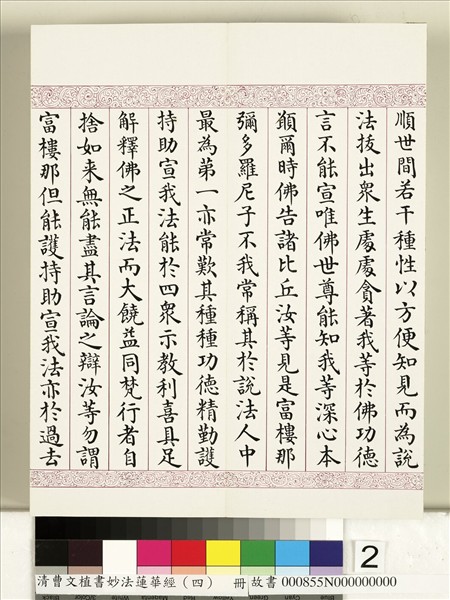 順世間若干種性以方便知見而為說
法拔出衆生處處貪著我等於佛功德
言不能宣唯佛世尊能知我等深心本
願爾時佛告諸比丘汝等見是富樓那
彌多羅尼子不我常稱其於說法人中
最為第一亦常歎其種種功德精勤護
持助宣我法能於四衆示教利喜具足
解釋佛之正法而大饒益同梵行者自
捨如来無能盡其言論之辯汝等勿謂
富樓那但能護持助宣我法亦於過去
2
清曹文植書妙法蓮華經（四） 冊 故書 000855N000000000